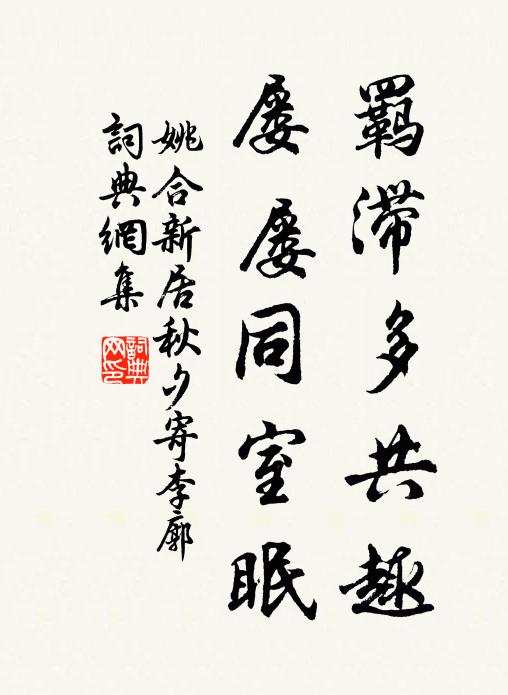 羈滯多共趣
屢屢同室眠
姚合新居秋夕寄李廓
詞典網集
詞典网印